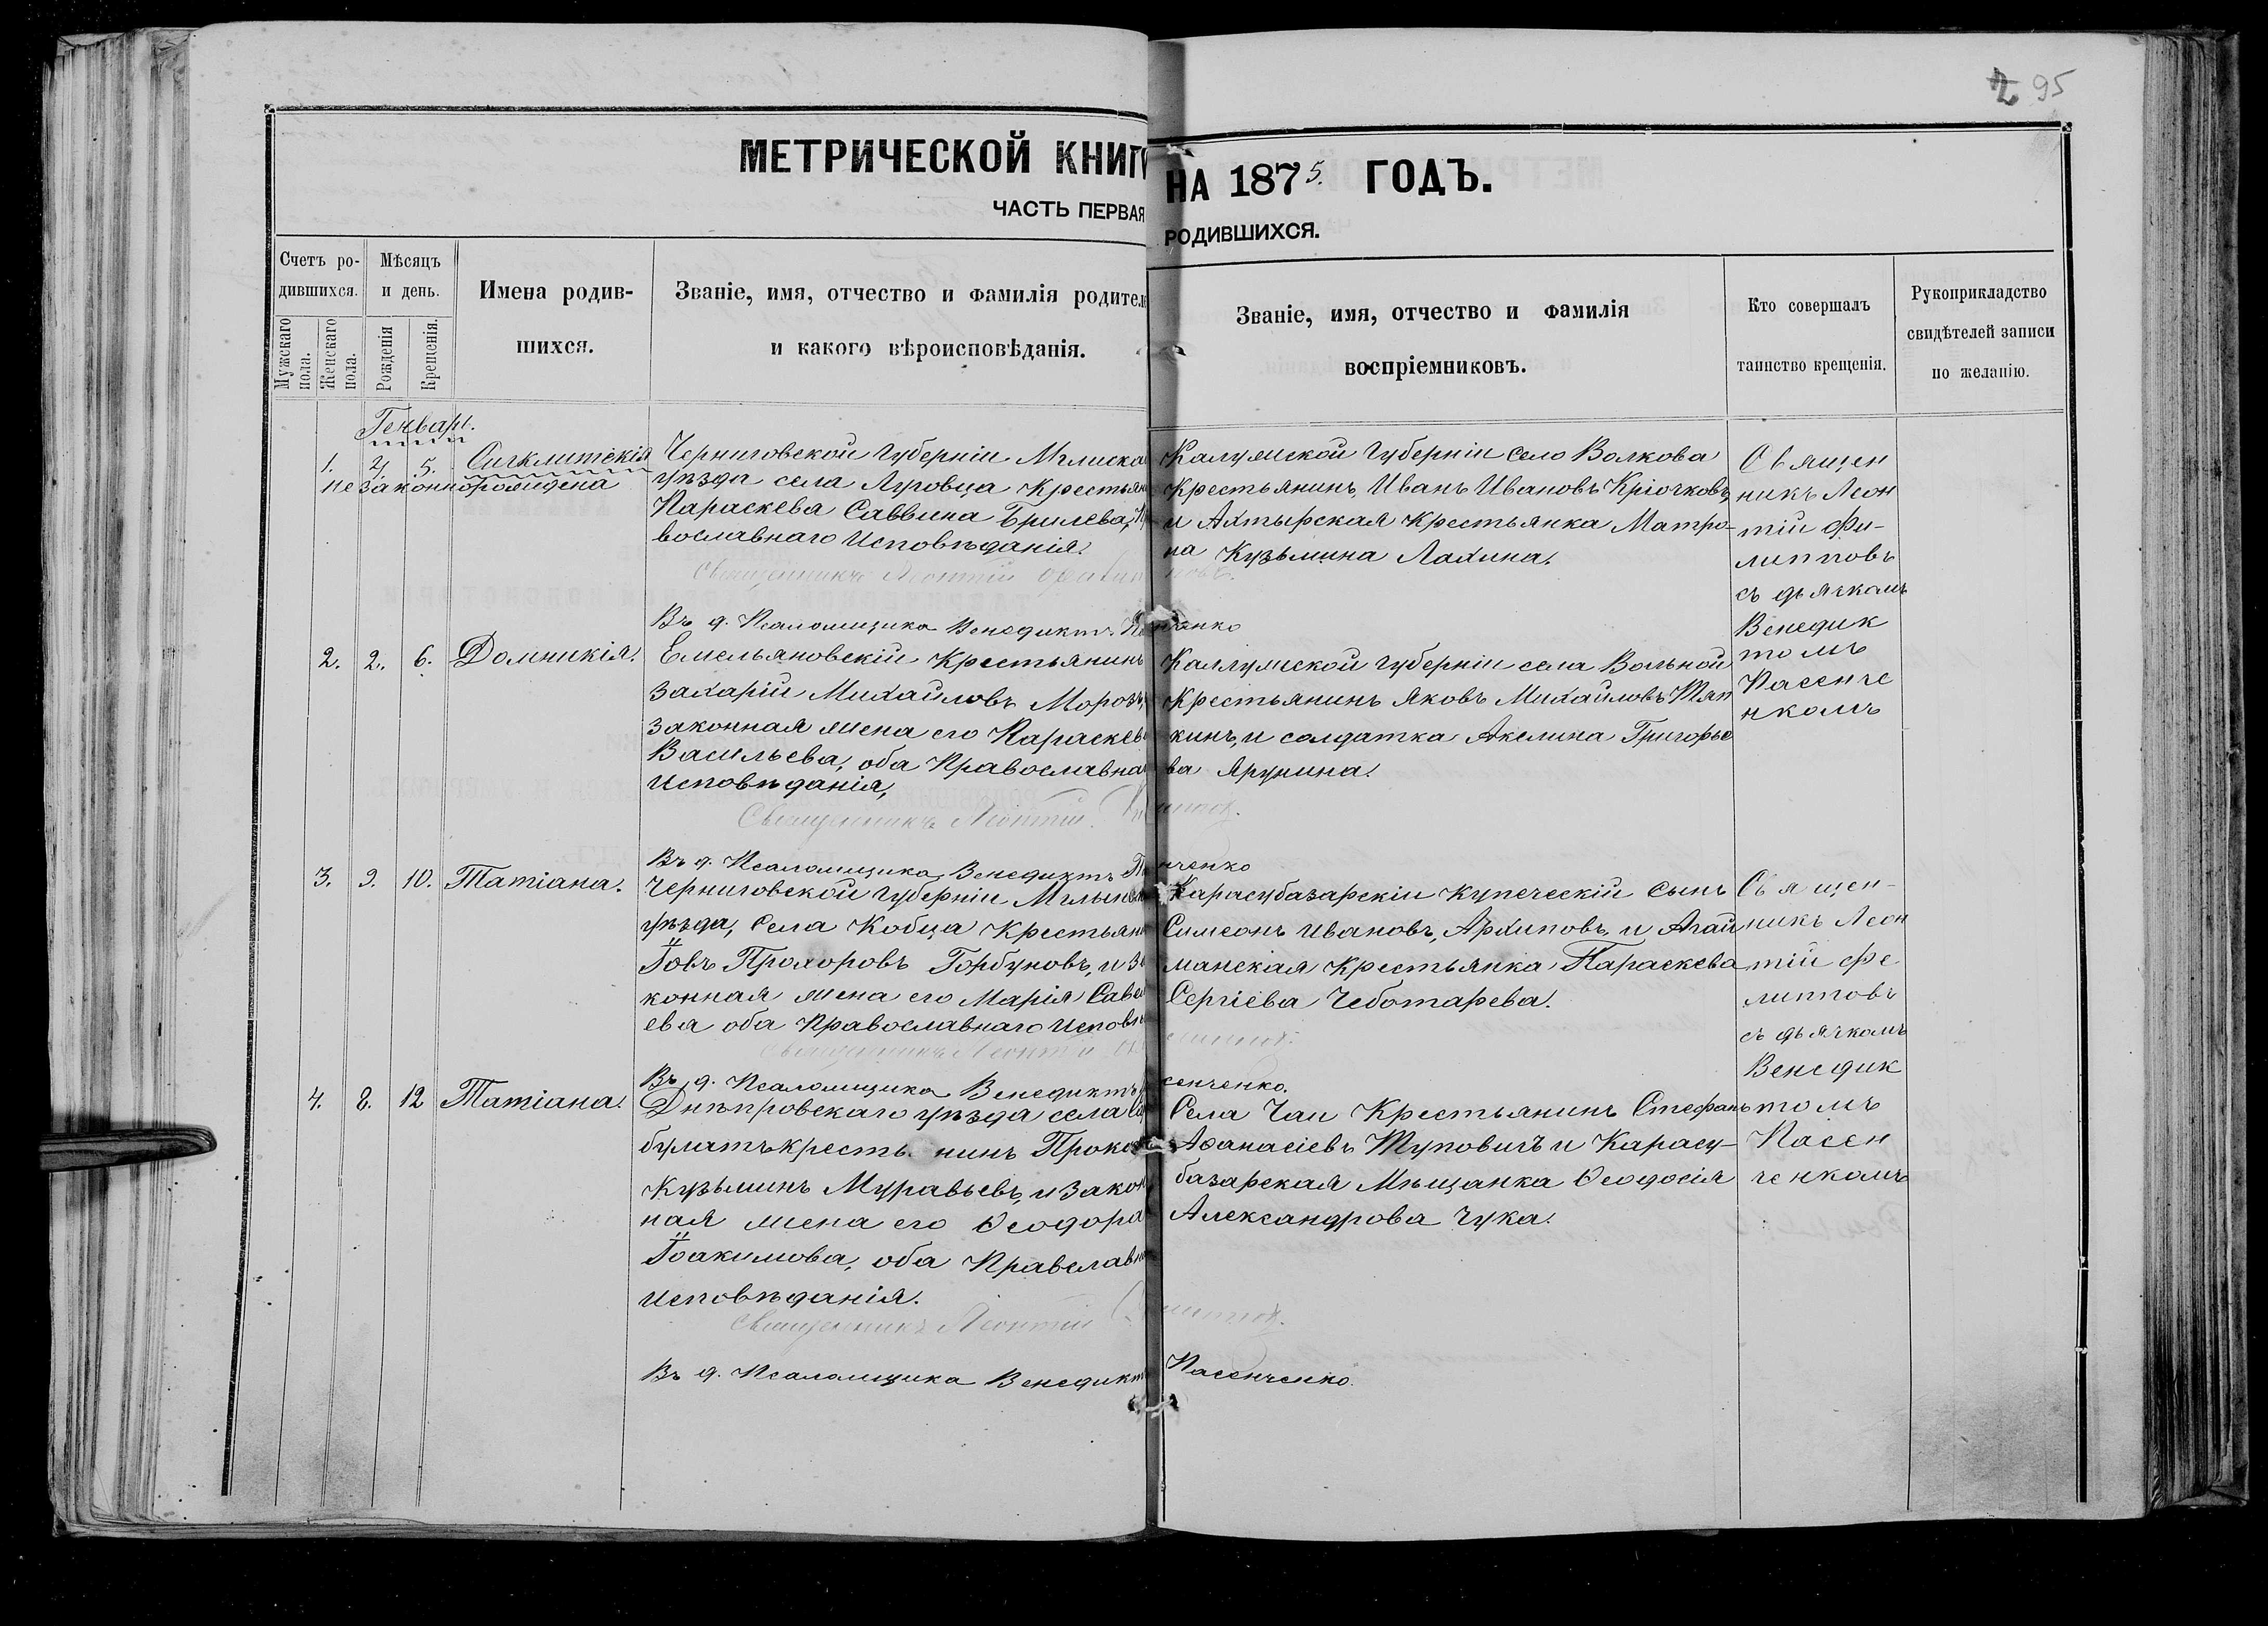 95
МЕТРИЧЕСКОЙ КНИГИ НА 1875. ГОДЪ.
ЧАСТЬ ПЕРВАЯ РОДИВШИХСЯ.
Счетъ ро-
дившихся.
Мужскаго пола.
Женскаго пола.
Мѣсяцъ
и день.
Рожденія
Крещенія.
Имена родив-
шихся.
Званіе, имя, отчество и фамилія родител
и какого вѣроисповѣданія.
Званіе, имя, отчество и фамилія
воспріемниковъ.
Кто совершалъ
таинство крещенія.
Рукоприкладство
свидѣтелей записи
по желанію.
Генваря.
1. 2, 5. Сигклитскія
незаконнорождена
Черниговской Губерніи Мглиска
уѣзда села Луговца Крестьян
Параскева Саввина Брилева, П
вославнаго Исповѣданія.
Священникъ Леонтій
Въ д. Псаломщика Венедиктъ
Калужской Губерніи село Волкова
Крестьянинъ, Иванъ Ивановъ Крючковъ,
и Ахтырская Крестьянка Матро-
на Кузьмина Лахина.
Священ
никъ Леон
тій Фи-
липповъ
съ дьячкомъ
Венедик
томъ
Пасенче
нкомъ
2. 2. 6. Домникія.
Емельяновскій Крестьянинъ
Захарій Михайловъ Морозъ,
законная жена его Параскев
Васильева, оба Православна
Исповѣданія,
Священникъ Леонтій
Въ д. Псаломщика Венедиктъ
нченко
Каллужской губерніи села Вольной
Крестьянинъ Яковъ Михайловъ Тяп
кинъ, и солдатка Акелина Григорье
ва Ярунина.
3. 9. 10. Татіана.
Черниговской Губерніи Мглынск
уѣзда, Села Кобца Крестьян
Іовъ Прохоровъ Горбуновъ, и за
конная жена его Марія Савел
ева оба Православнаго Исповѣ
Священникъ Леонтій
Въ д. Псаломщика Венедиктъ
сенченко.
Карасубазарскій Купеческій Сынъ
Симеонъ Ивановъ, Архиповъ, и Агай
манская Крестьянка Параскева
Сергіева Чеботарева.
Священ-
никъ Леон
тій Фе
липповъ
съ дьячкомъ
Венедик
томъ
Пасен
ченкомъ
4. 8. 12 Татіана.
Днѣпровскаго уѣзда села
булатъ крестьянинъ Проко
Кузьминъ Муравьевъ, и закон
ная жена его Ѳеодора
Іоакимова, оба Правславн
Исповѣданія.
Священникъ Леонтій
Въ д. Псаломщика Венедикт Пасенченко.
Села Чаи Крестьянинъ Стефанъ
Аѳанасіевъ Туповичъ и Карасу-
базарская Мѣщанка Ѳеодосія
Александрова Чука.